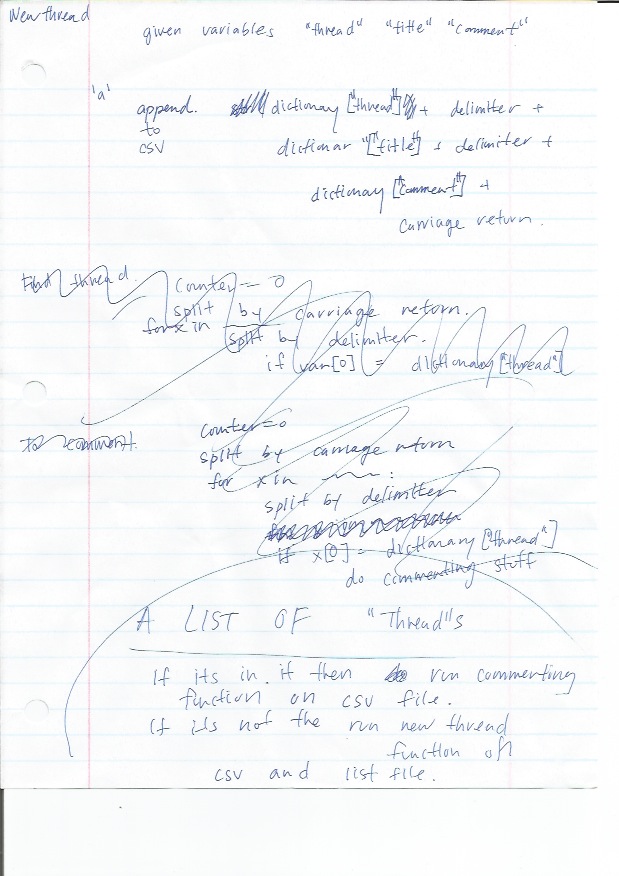 New thread
given variables "thread" "title" "comment"
'a'
append dictionary ["thread"] + delimiter +
to
csv dictionar ["title"] + delimiter +
dictionary ["comment"] +
carriage return.
Find thread. counter = 0
split by carriage return.
for x in split by delimiter.
if var[0] = dictionary ["thread"]
to comment. counter=0
split by carriage return
for x in :
split by delimiter
if x[0] = dictionary ["thread"]
do commenting stuff
A LIST OF "Thread"s
If its in it then run commenting
function on csv file.
If its not the run new thread
function on
csv and list file.